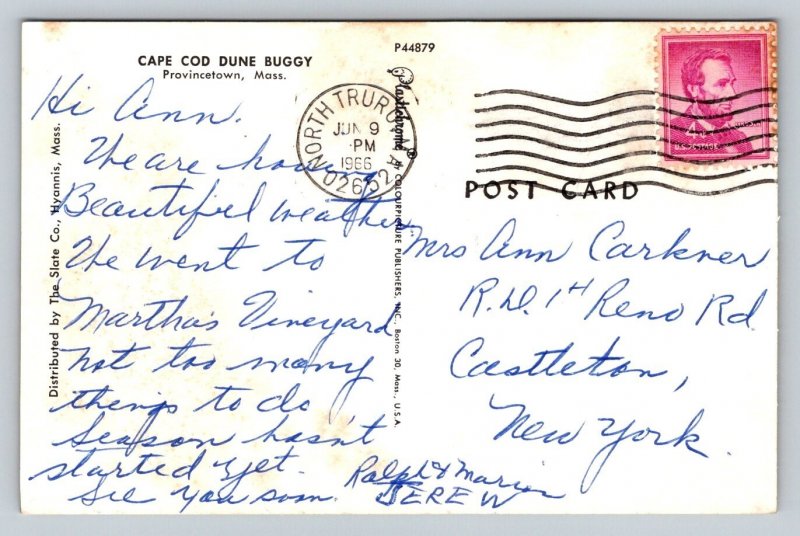 CAPE COD DUNE BUGGY
Provincetown, Mass.
P44879
Hi Ann.
We are having
Beautiful weather
We went to
Martha's Vineyard
not too many
things to do
Season hasn't
started yet.
See you soon.
Ralph & Marion
JERE W
Distributed by The Slate Co., Hyannis, Mass.
Plastichrome ® by COLOURPICTURE PUBLISHERS, INC., Boston 30, Mass., U.S.A.
NORTH TRURO, MA
JUN 9
PM
1966
02652
POST CARD
Mrs Ann Carkner
R.D. 1 Reno Rd
Castleton,
New York.